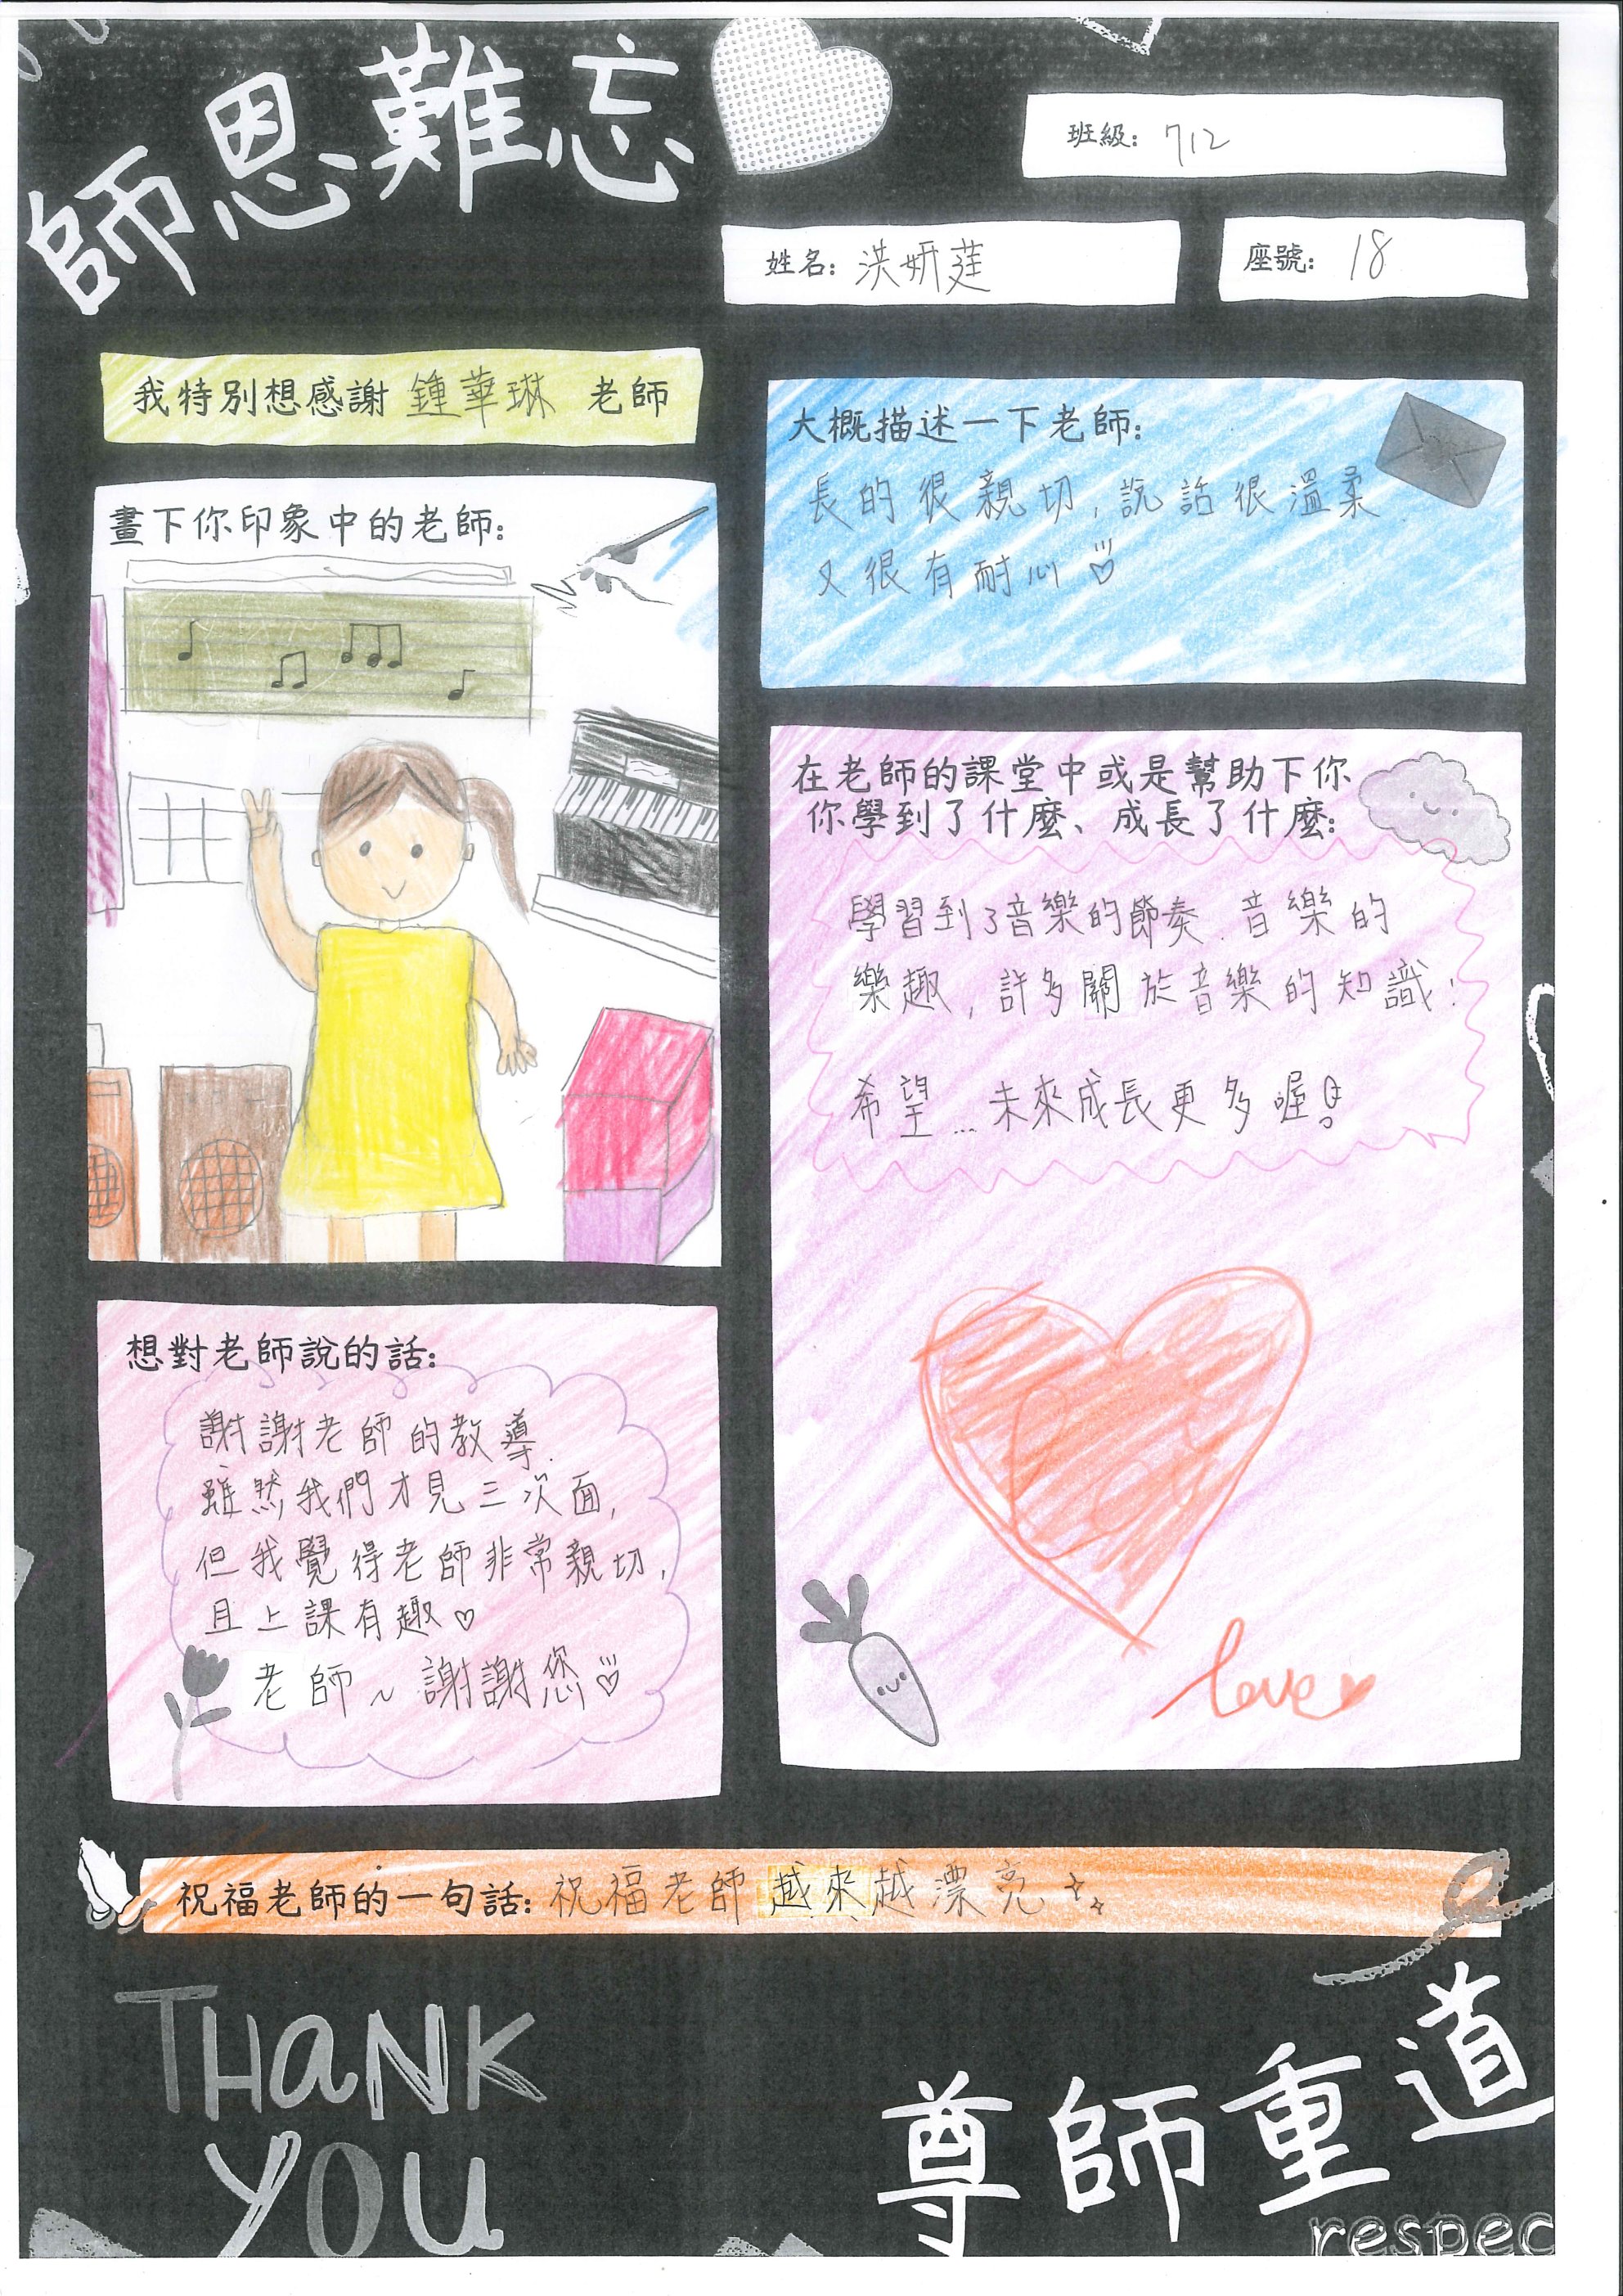 師恩難忘
班級：712
姓名：洪妍莛
座號：18
我特別想感謝 鍾華琳 老師
大概描述一下老師：
長的很親切，說話很溫柔
又很有耐心
畫下你印象中的老師：
在老師的課堂中或是幫助下你
你學到了什麼、成長了什麼：
學習到了音樂的節奏、音樂的
樂趣，許多關於音樂的知識！
希望…未來成長更多喔！
love
想對老師說的話：
謝謝老師的教導，
雖然我們才見三次面，
但我覺得老師非常親切，
且上課有趣♡
老師～謝謝您♡
祝福老師的一句話：祝福老師越來越漂亮
THANK
YOU
尊師重道
respec